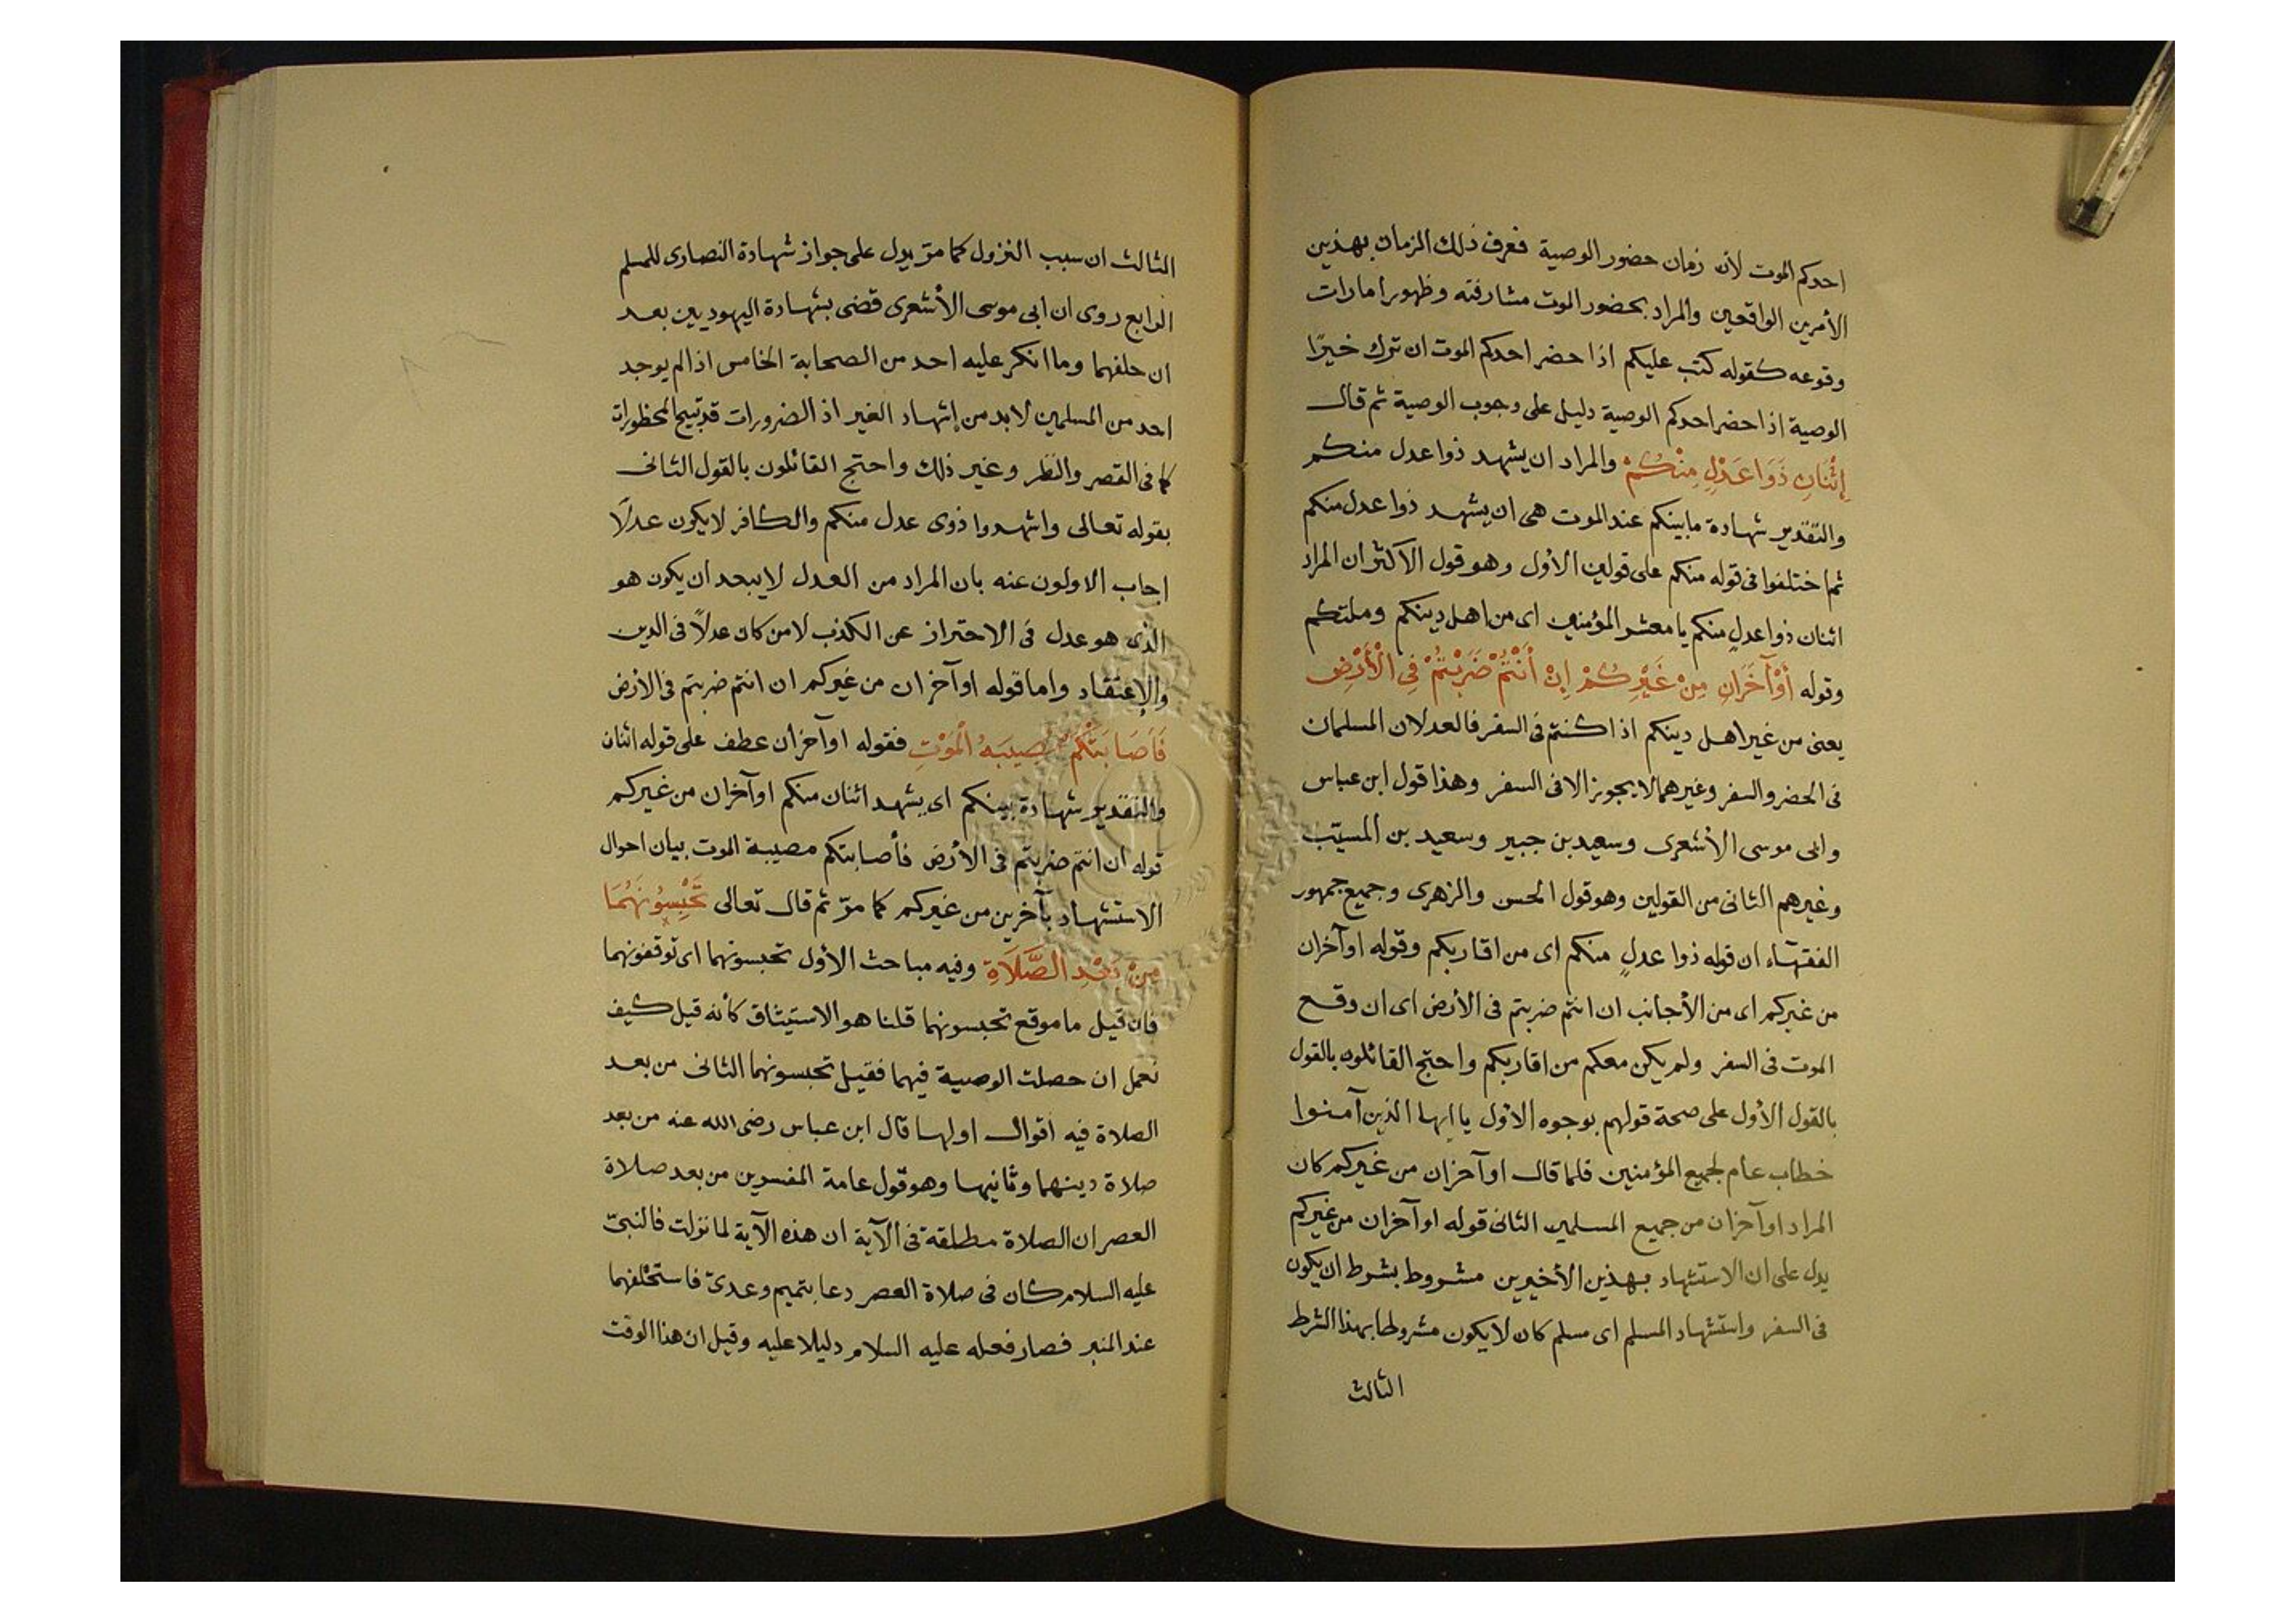 احدكم الموت لأن زمان حضور الوصية فعرف ذلك الزمان بهذين
الأمرين الواقعين والمراد بحضور الموت مشارفته وظهور امارات
وقوعه كقوله كتب عليكم اذا حضر احدكم الموت ان ترك خيرًا
الوصية اذا حضر احدكم الوصية دليل على وجوب الوصية ثم قال
إِثْنَانِ ذَوَا عَدْلٍ مِنْكُمْ والمراد ان يشهد ذوا عدل منكم
والتقدير شهادة ما بينكم عند الموت هى ان يشهد ذوا عدل منكم
ثم اختلفوا فى قوله منكم على قولين الأول وهو قول الأكثر ان المراد
اثنان ذوا عدلٍ منكم يا معشر المؤمنين اى من اهل دينكم وملتكم
وقوله أَوْ آخَرَانِ مِنْ غَيْرِكُمْ إِنْ أَنْتُمْ ضَرَبْتُمْ فِى الْأَرْضِ
يعنى من غير اهل دينكم اذا كنتم فى السفر فالعدلان المسلمان
فى الحضر والسفر وغيرهما لا يجوز الا فى السفر وهذا قول ابن عباس
وابى موسى الأشعرى وسعيد بن جبير وسعيد بن المسيّب
وغيرهم الثانى من القولين وهو قول الحسن والزهرى وجميع جمهور
الفقهاء ان قوله ذوا عدلٍ منكم اى من اقاربكم وقوله او آخران
من غيركم اى من الأجانب ان انتم ضربتم فى الأرض اى ان وقع
الموت فى السفر ولم يكن معكم من اقاربكم واحتج القائلون بالقول
بالقول الأول على صحة قولهم بوجوه الأول يا ايها الذين آمنوا
خطاب عام لجميع المؤمنين فلما قال او آخران من غيركم كان
المراد او آخران من جميع المسلمين الثانى قوله او آخران من غيركم
يدل على ان الاستشهاد بهذين الأخيرين مشروط بشرط ان يكون
فى السفر واستشهاد المسلم اى مسلم كان لا يكون مشروطا بهذا الشرط
الثالث
الثالث ان سبب النزول كما مرّ يدل على جواز شهادة النصارى للمسلم
الرابع روى ان ابى موسى الأشعرى قضى بشهادة اليهوديين بعد
ان حلفهما وما انكر عليه احد من الصحابة الخامس اذا لم يوجد
احد من المسلمين لا بد من إشهاد الغير اذ الضرورات قد تبيح المحظورات
كما فى القصر والنظر وغير ذلك واحتج القائلون بالقول الثانى
بقوله تعالى واشهدوا ذوى عدل منكم والكافر لا يكون عدلًا
اجاب الاولون عنه بان المراد من العدل لا يبعد ان يكون هو
الذى هو عدل فى الاحتراز عن الكذب لا من كان عدلاً فى الدين
والإعتقاد واما قوله او آخران من غيركم ان انتم ضربتم فى الأرض
فَأَصَابَتْكُمْ مُصِيبَةُ الْمَوْتِ فقوله او آخران عطف على قوله اثنان
والتقدير شهادة بينكم اى يشهد اثنان منكم او آخران من غيركم
قوله ان انتم ضربتم فى الأرض فأصابتكم مصيبة الموت بيان احوال
الاستشهاد بآخرين من غيركم كما مرّ ثم قال تعالى تَحْبِسُونَهُمَا
مِنْ بَعْدِ الصَّلَاةِ وفيه مباحث الأول تحبسونهما اى توقفونهما
فان قيل ما موقع تحبسونهما قلنا هو الاستيثاق كأنه قيل كيف
نعمل ان حصلت الوصية فيهما فقيل تحبسونهما الثانى من بعد
الصلاة فيه اقوال اولها قال ابن عباس رضى الله عنه من بعد
صلاة دينهما وثانيها وهو قول عامة المفسرين من بعد صلاة
العصر ان الصلاة مطلقة فى الآية ان هذه الآية لما نزلت فالنبىّ
عليه السلام كان فى صلاة العصر دعا بتميم وعدىّ فاستحلفهما
عند المنبر فصار فعله عليه السلام دليلا عليه وقيل ان هذا الوقت